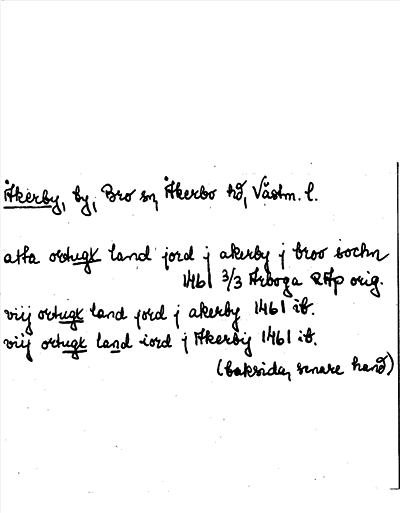 Åkerby, by, Bro sn, Åkerbo hd, Västm. l.
atta ortugt land jord j akerby j broo sochn
1461 3/3 Arboga RAp orig.
viij ortugt land jord j akerby 1461 ib.
viij ortugt land iord j Akerbij 1461 ib.
(baksida, senare hand)